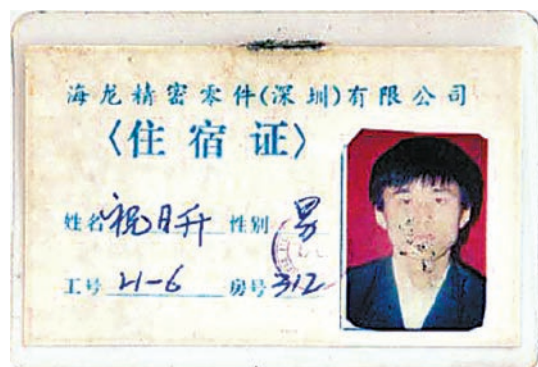 海龙精密零件(深圳)有限公司
〈住宿证〉
姓名 祝日升 性别 男
工号 21-6 房号 312